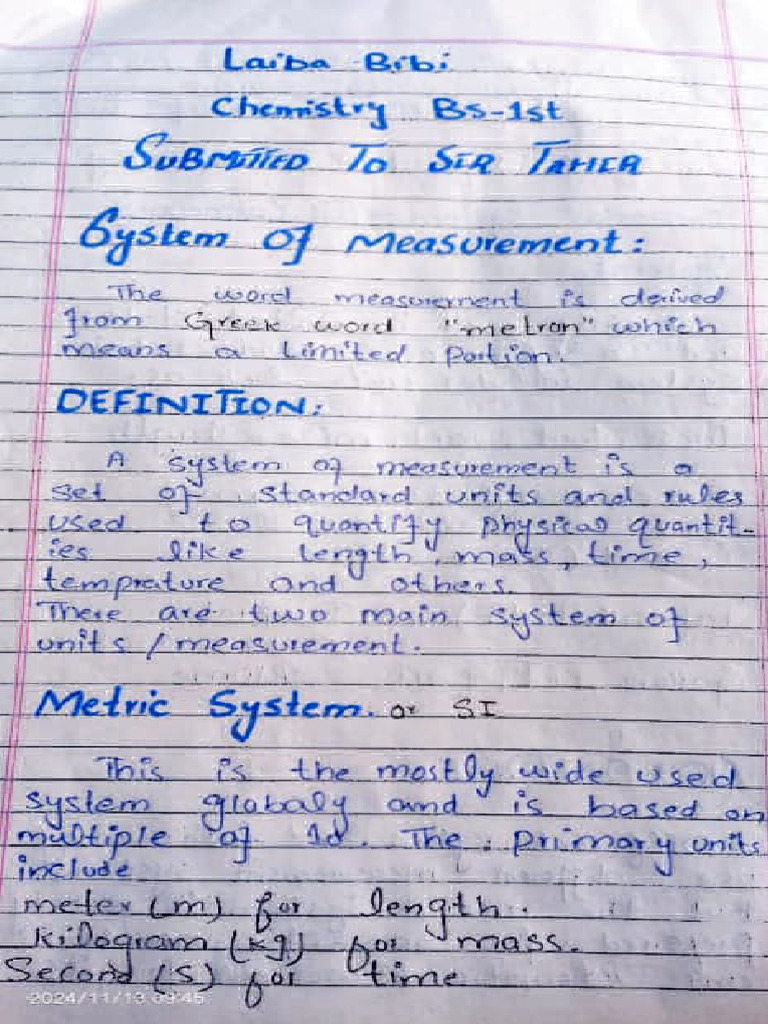 Laiba Bibi
Chemistry Bs-1st
SUBMITTED TO SIR TAHER
System Of Measurement:
The word measurement is derived
from Greek word "metron" which
means a limited portion.
DEFINITION:
A system of measurement is a
set of standard units and rules
used to quantify physical quantit-
ies like length, mass, time,
temprature and others.
There are two main system of
units / measurement.
Metric System. or SI
This is the mostly wide used
system globaly and is based on
multiple of 10. The primary units
include
meter (m) for length.
kilogram (kg) for mass.
Second (s) for time
2024/11/13 09:45